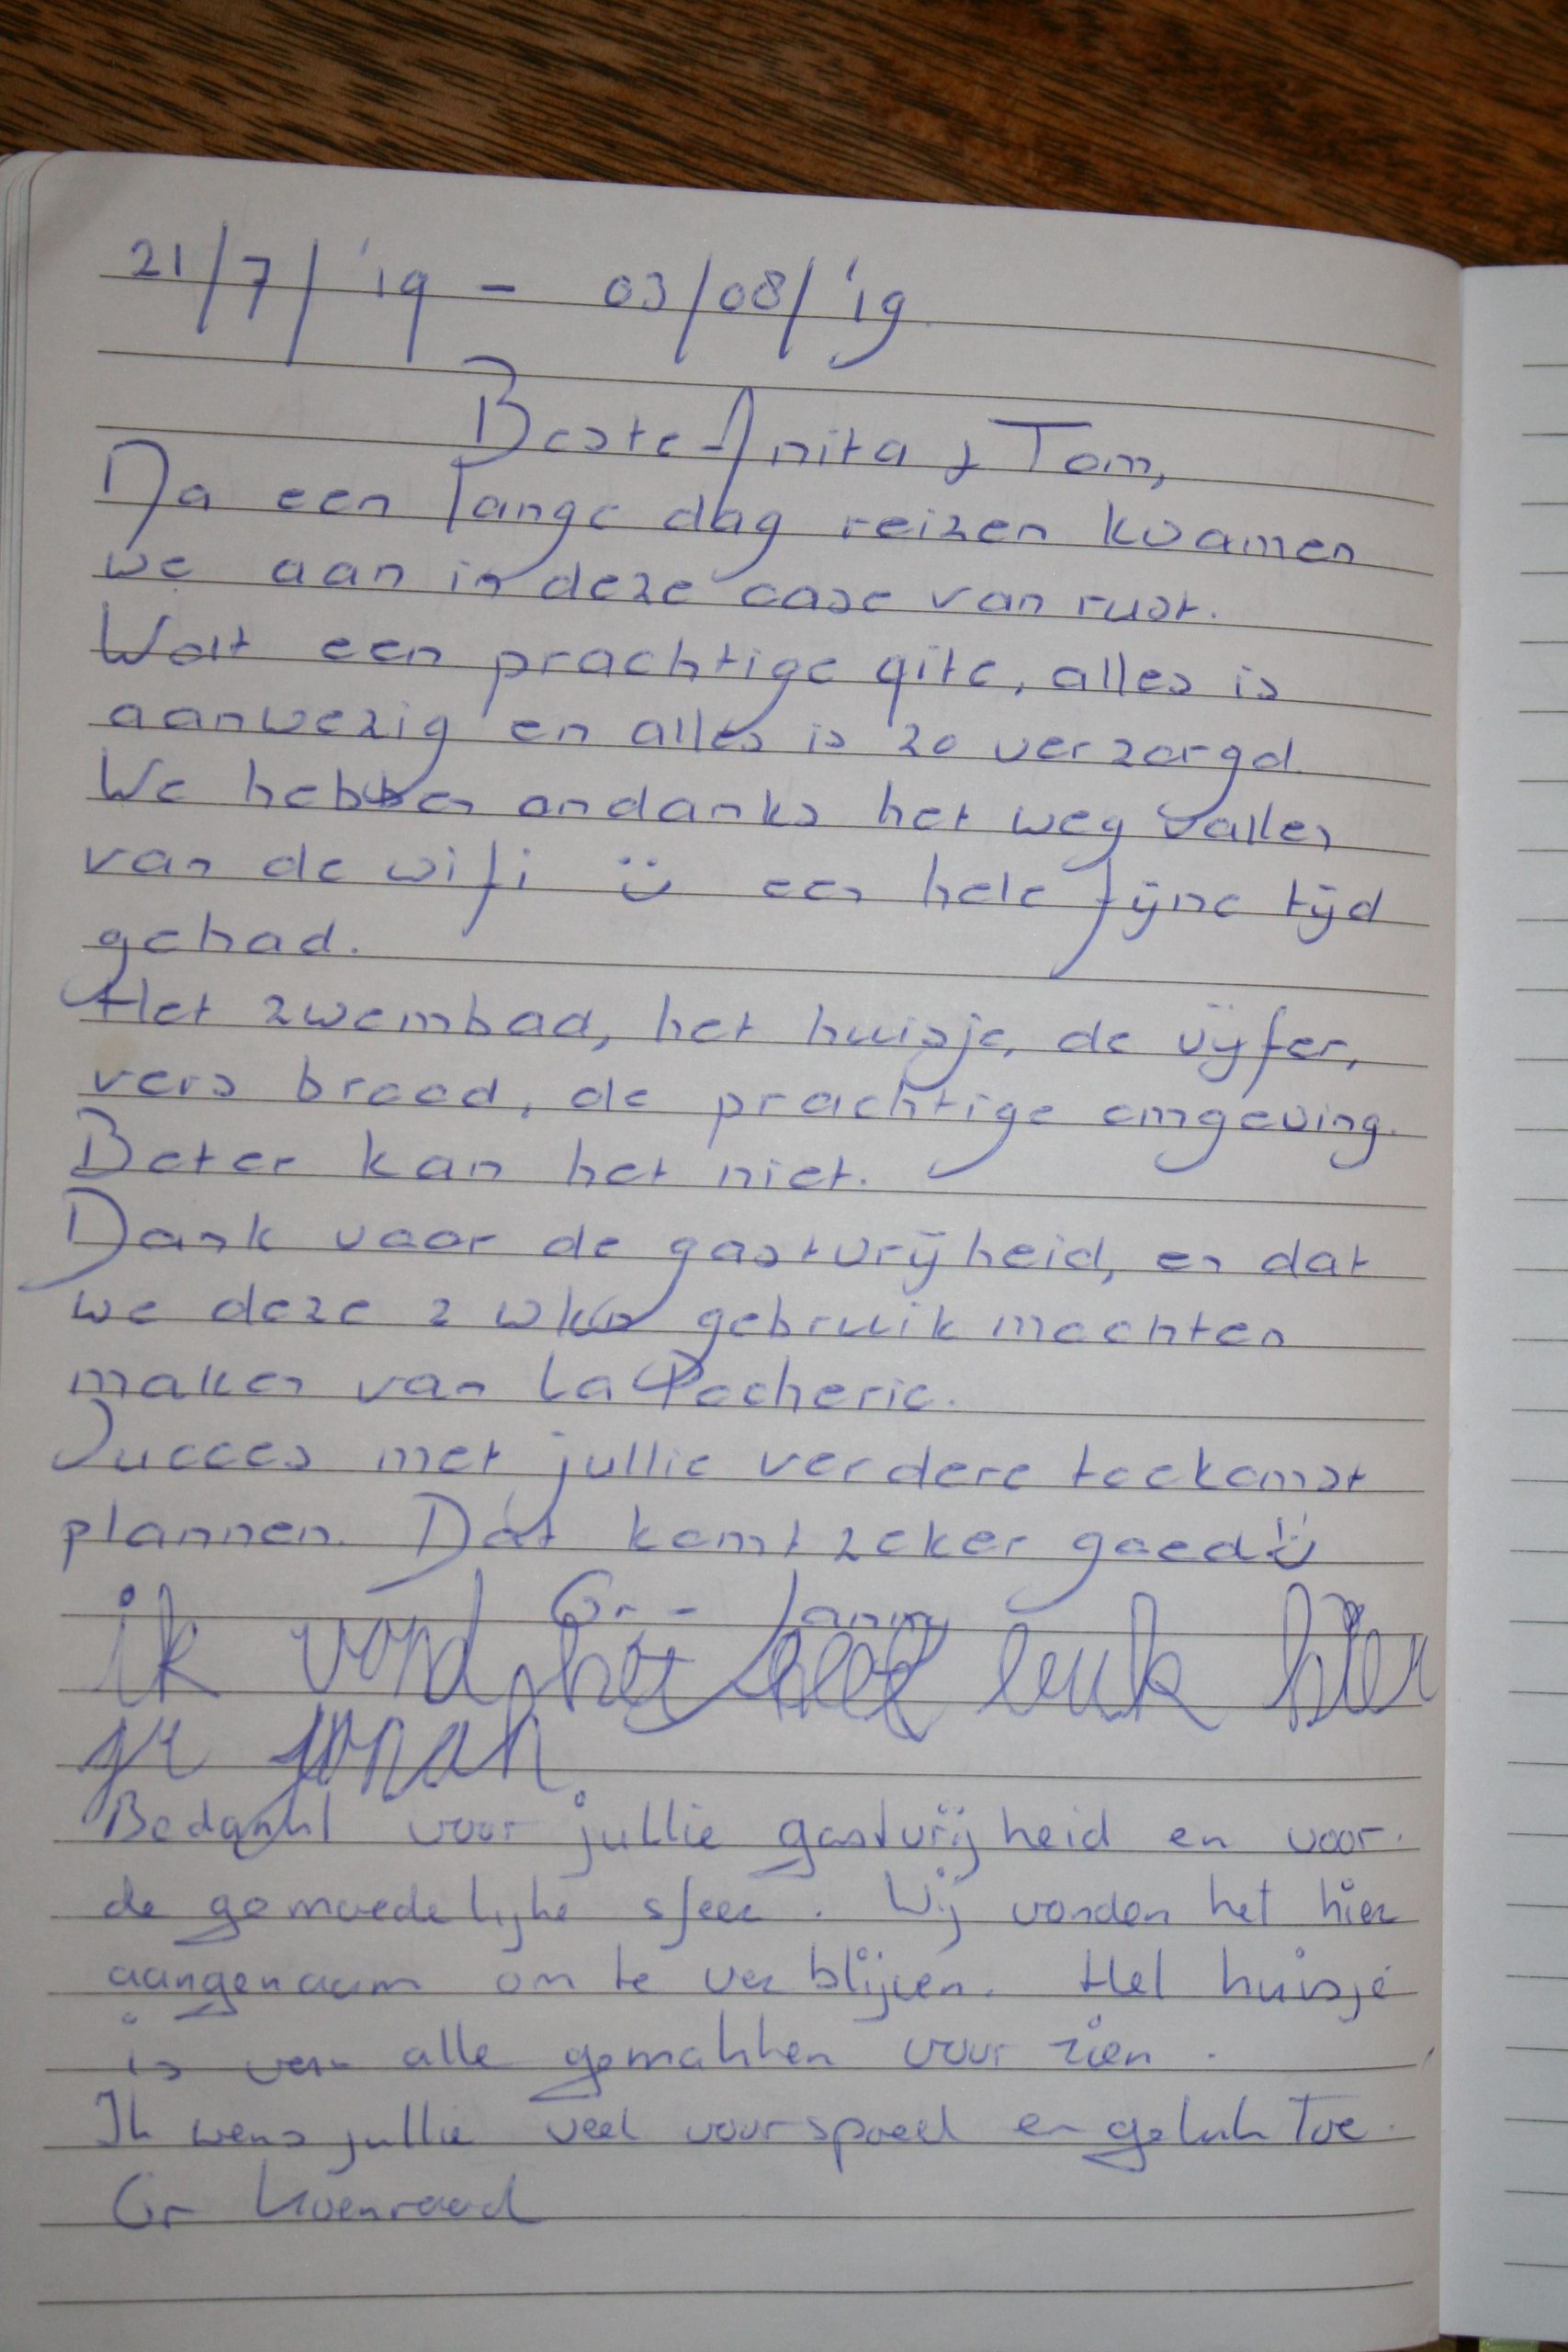 21/7/'19 - 03/08/'19.
Beste Anita & Tom,
Na een lange dag reizen kwamen
we aan in deze oase van rust.
Wat een prachtige gite, alles is
aanwezig en alles is zo verzorgd.
We hebben ondanks het weg vallen
van de wifi ü een hele fijne tijd
gehad.
Het zwembad, het huisje, de vijfer,
vers brood, de prachtige omgeving.
Beter kan het niet.
Dank voor de gastvrijheid, en dat
we deze 2 wkn gebruik mochten
maken van La Pocherie.
Succes met jullie verdere toekomst
plannen. Dat komt zeker goed ü
Gr-
ik vond het heel leuk hier
gr jonah
Bedankt voor jullie gastvrijheid en voor
de gemoedelijke sfeer. Wij vonden het hier
aangenaam om te verblijven. Het huisje
is van alle gemakken voor zien.
Ik wens jullie veel voorspoed en geluk toe.
Gr Koenraad